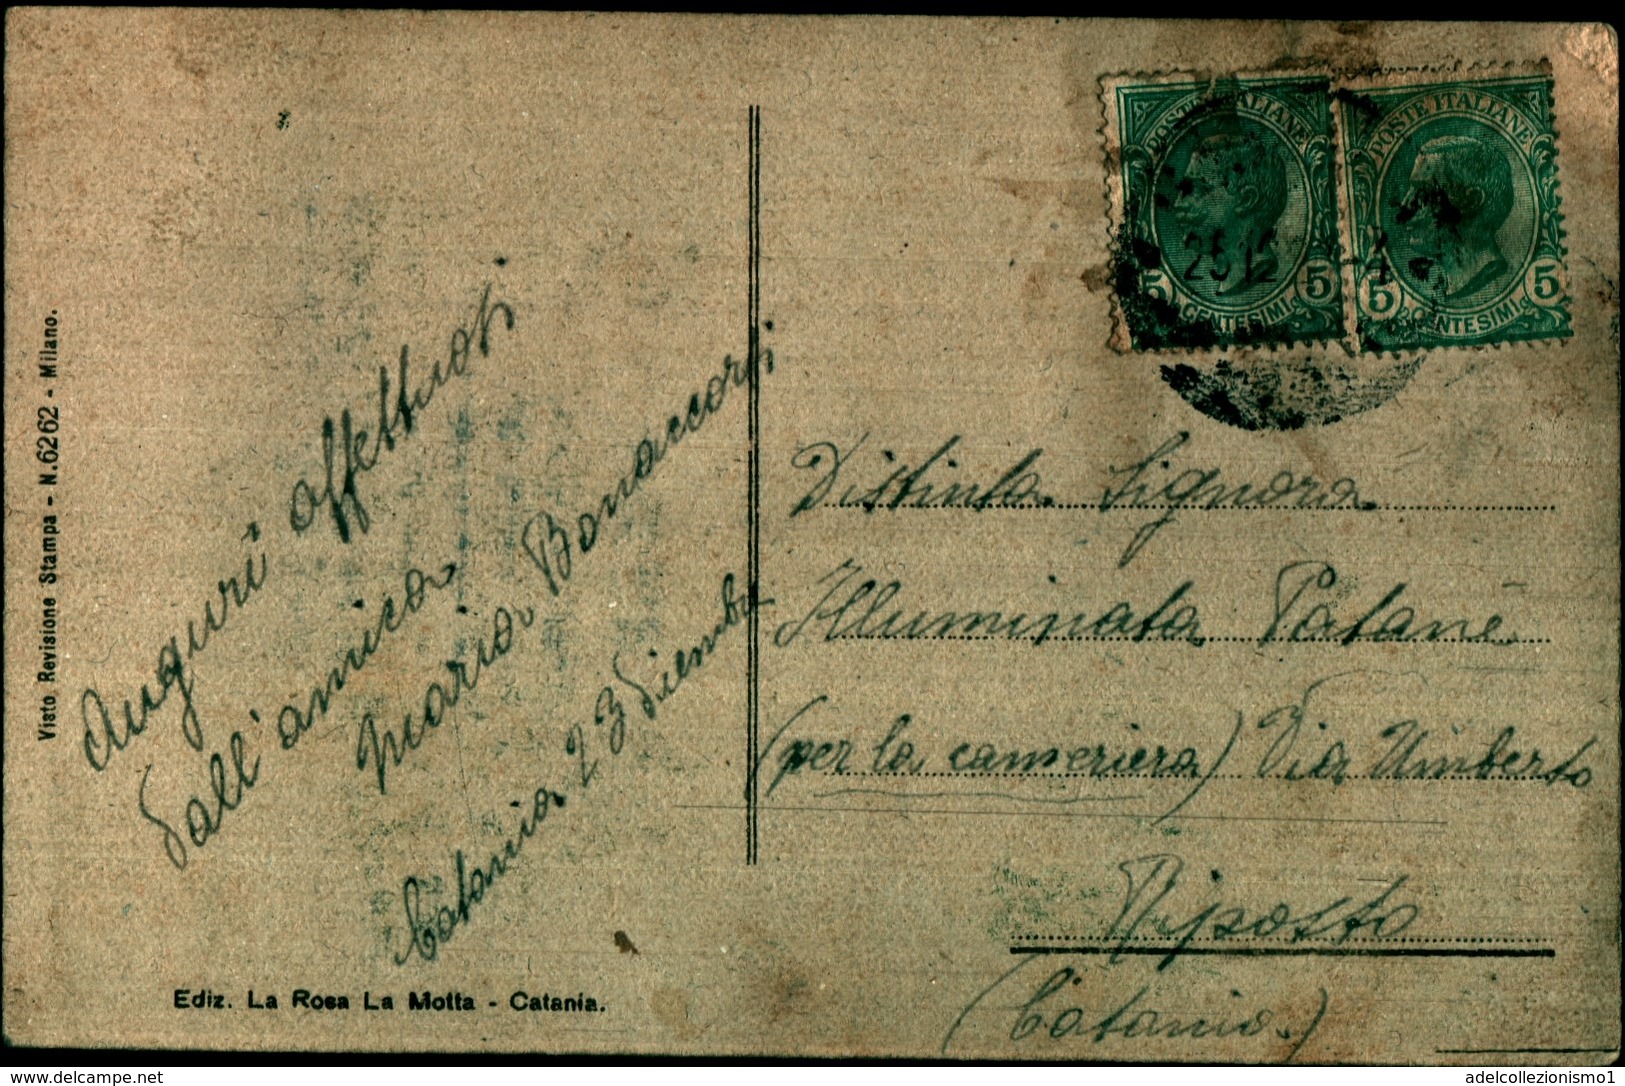 Auguri affettuosi
dall'amica
Maria Bonaccorsi
Catania 23 Dicembre
Visto Revisione Stampa - N.6262 - Milano.
Ediz. La Rosa La Motta - Catania.
POSTE ITALIANE
5 5
CENTESIMI
POSTE ITALIANE
5 5
CENTESIMI
25 12
Distinta Signora
Illuminata Patanè
(per la cameriera) Via Umberto
Riposto
(Catania.)
delcampe.net
adelcollezionismo1